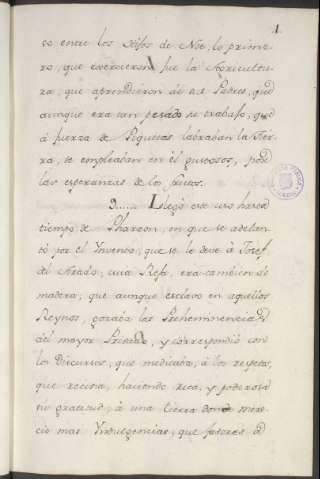 1.
se entre los Hijos de Noè, lo prime-
ro, que exercieron fue la Agricultu-
ra, que aprendieron de sus Padres, qued
aunque era tan pesado su trabajo, qued
à fuerza de Piquetas labraban la Tier-
ra, se empleaban en èl gustosos, pord
las esperanzas de los frutos.
2.... Llegò este uso hasta el
tiempo de Pharaon, en que se adelan-
tò por el Ynvento, que se le deve à Josef,
del Arado, cuia Reja, era tambien de
madera; que aunque esclavo en aquellos
Reynos, gozaba las Prehemnencias d
del mayor Privado, y correspondiò con
los Discursos, que meditaba, à los respetos,
que recivia, haciendo rica, y poderosa
su gratitud, à una tierra donde mere-
ciò mas Yndulgencias, que favores d